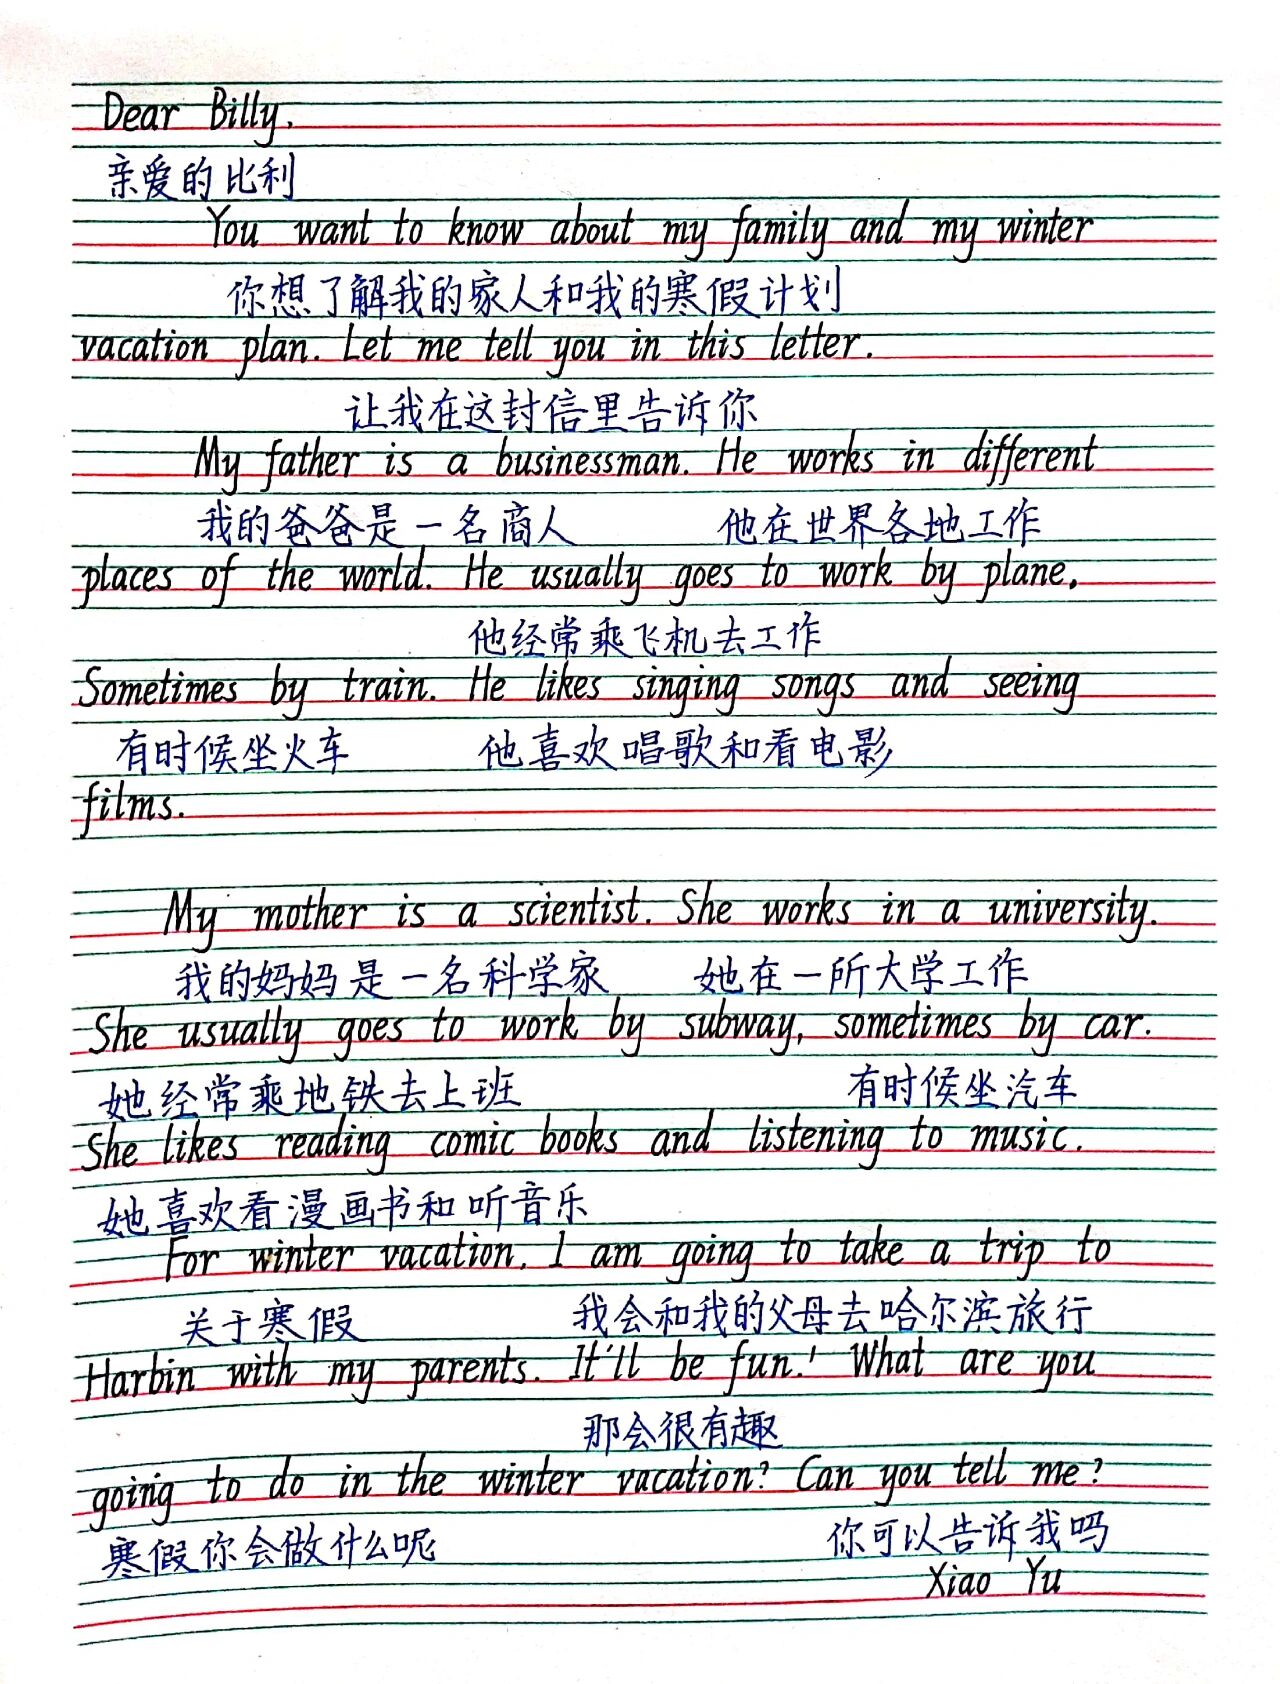 Dear Billy,
亲爱的比利
You want to know about my family and my winter
你想了解我的家人和我的寒假计划
vacation plan. Let me tell you in this letter.
让我在这封信里告诉你
My father is a businessman. He works in different
我的爸爸是一名商人 他在世界各地工作
places of the world. He usually goes to work by plane.
他经常乘飞机去工作
Sometimes by train. He likes singing songs and seeing
有时候坐火车 他喜欢唱歌和看电影
films.
My mother is a scientist. She works in a university.
我的妈妈是一名科学家 她在一所大学工作
She usually goes to work by subway, sometimes by car.
她经常乘地铁去上班 有时候坐汽车
She likes reading comic books and listening to music.
她喜欢看漫画书和听音乐
For winter vacation. I am going to take a trip to
关于寒假 我会和我的父母去哈尔滨旅行
Harbin with my parents. It'll be fun.! What are you
那会很有趣
going to do in the winter vacation? Can you tell me?
寒假你会做什么呢 你可以告诉我吗
Xiao Yu